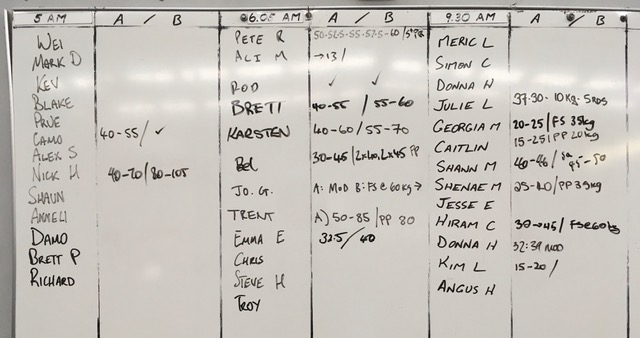 5 AM A / B 6.05 AM A / B 9.30 AM A / B
WEI
MARK D
KEV
BLAKE
PRUE
CAMO 40-55/ ✓
ALEX S
NICK H 40-70/80-105
SHAUN
ANNELI
DAMO
BRETT P
RICHARD
PETE R
ALI M →13/
ROD ✓ ✓
BRETT 40-55 / 55-60
KARSTEN 40-60/55-70
BEL 30-45
JO. G. A: MOD B: FS @ 60kg →
TRENT A) 50-85/PP 80
EMMA E 32.5/40
CHRIS
STEVE H
TROY
MERIC L
SIMON C
DONNA H
JULIE L 37:30 - 10KG - 5RDS
GEORGIA M 20-25/FS 35kg
CAITLIN 15-25/PP 20kg
SHANN M 40-46/
SHENAE M 25-40/PP 35kg
JESSE E
HIRAM C 30→45/FS@60kg
DONNA H 32:39 MOD
KIM L 15-20/
ANGUS H